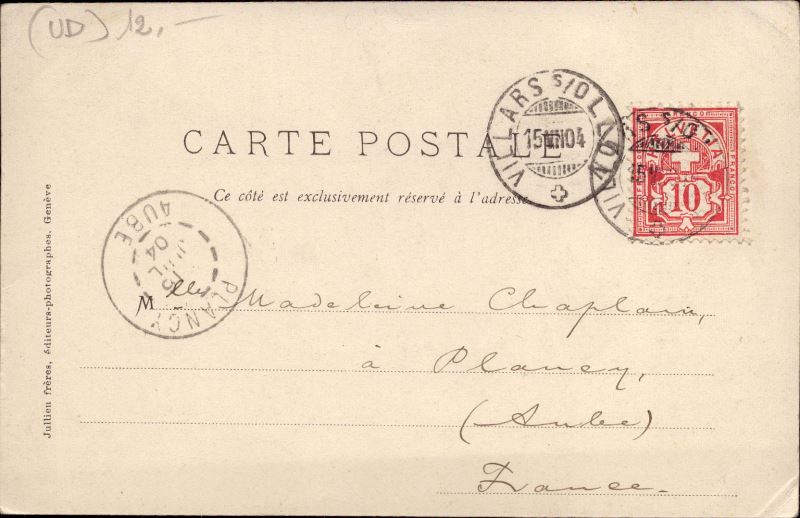 (UD) 12,-
VILLARS S/OLLON
15 VII 04
HELVETIA
FRANCO
10
CARTE POSTALE
Ce côté est exclusivement réservé à l'adresse
PLANCY
AUBE
JUIL
04
Mlle Madeleine Chaplain,
à Plancy,
(Aube)
France.
Jullien frères, éditeurs-photographes, Genève